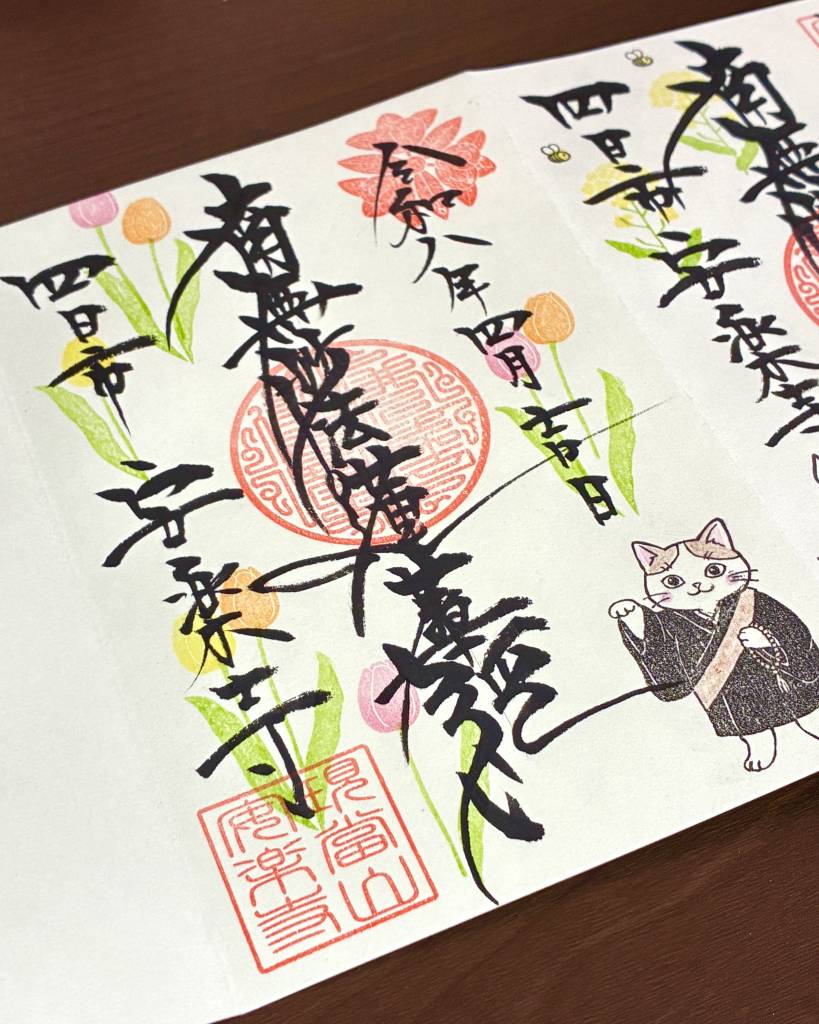 南無
四日市 安楽寺
令和八年四月吉日
南無妙法蓮華経
四日市 安楽寺
現當山
安楽寺